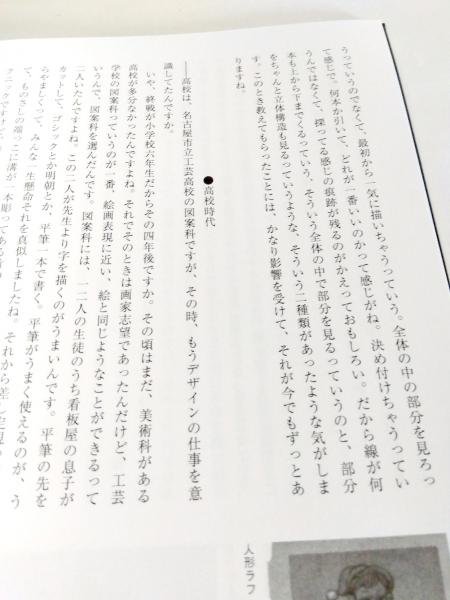 うっていうのでなくて、最初から一気に描いちゃうっていう。全体の中の部分を見ろっ
て感じで、何本か引いて、どれが一番いいのかって感じがね。決め付けちゃうってい
うんではなくて、探ってる感じの痕跡が残るのがかえっておもしろい。だから線が何
本も上から下までくるっていう、そういう全体の中で部分を見るっていうのと、部分
をちゃんと立体構造も見るっていうような、そういう二種類があったような気がしま
す。このとき教えてもらったことには、かなり影響を受けて、それが今でもずっとあ
りますね。
●高校時代
——高校は、名古屋市立工芸高校の図案科ですが、その時、もうデザインの仕事を意
識してたんですか。
いや、終戦が小学校六年生だからその四年後ですか。その頃はまだ、美術科がある
高校が多分なかったんですよね。それでそのときは画家志望であったんだけど、工芸
学校の図案科っていうのが一番、絵画表現に近い、絵と同じようなことができるって
いうんで、図案科を選んだんです。図案科には、一二人の生徒のうち看板屋の息子が
二人いたんですよね。この二人が先生より字を描くのがうまいんです。平筆の先を
カットして、ゴシックとか明朝とか、平筆一本で書く。平筆がうまく使えるのが、う
らやましくって、みんな一生懸命それを真似しましたね。それから
て、ものさしの端っこに溝が一本彫ってある
人形ラフ